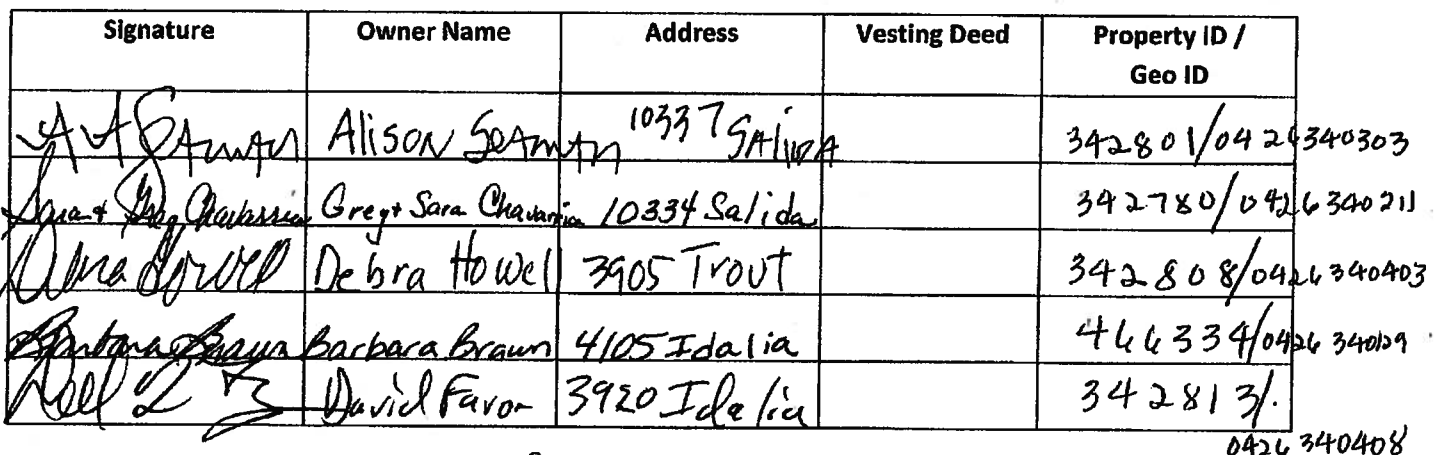 Signature Owner Name Address Vesting Deed Property ID /
Geo ID
Alison Seaman 10337 Salida 342801/0426340303
Sara & Greg Chavarria Greg + Sara Chavarria 10334 Salida 342780/0426340211
Debra Howell 3905 Trout 342808/0426340403
Barbara Braun Barbara Braun 4105 Idalia 466334/0426340129
David Favor 3920 Idalia 342813/.
0426340408